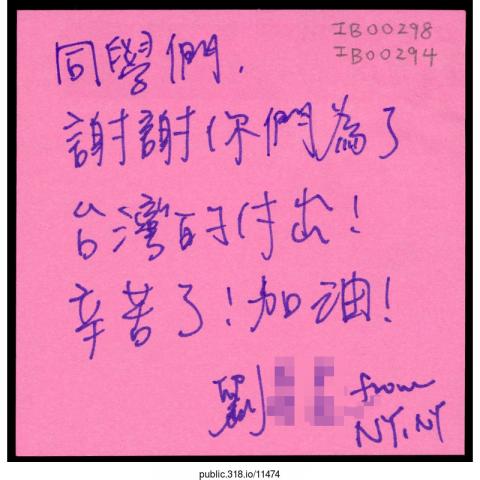 IB00298
IB00294
同學們,
謝謝你們為了
台灣的付出!
辛苦了!加油!
劉 from
NY, NY
public.318.io/11474